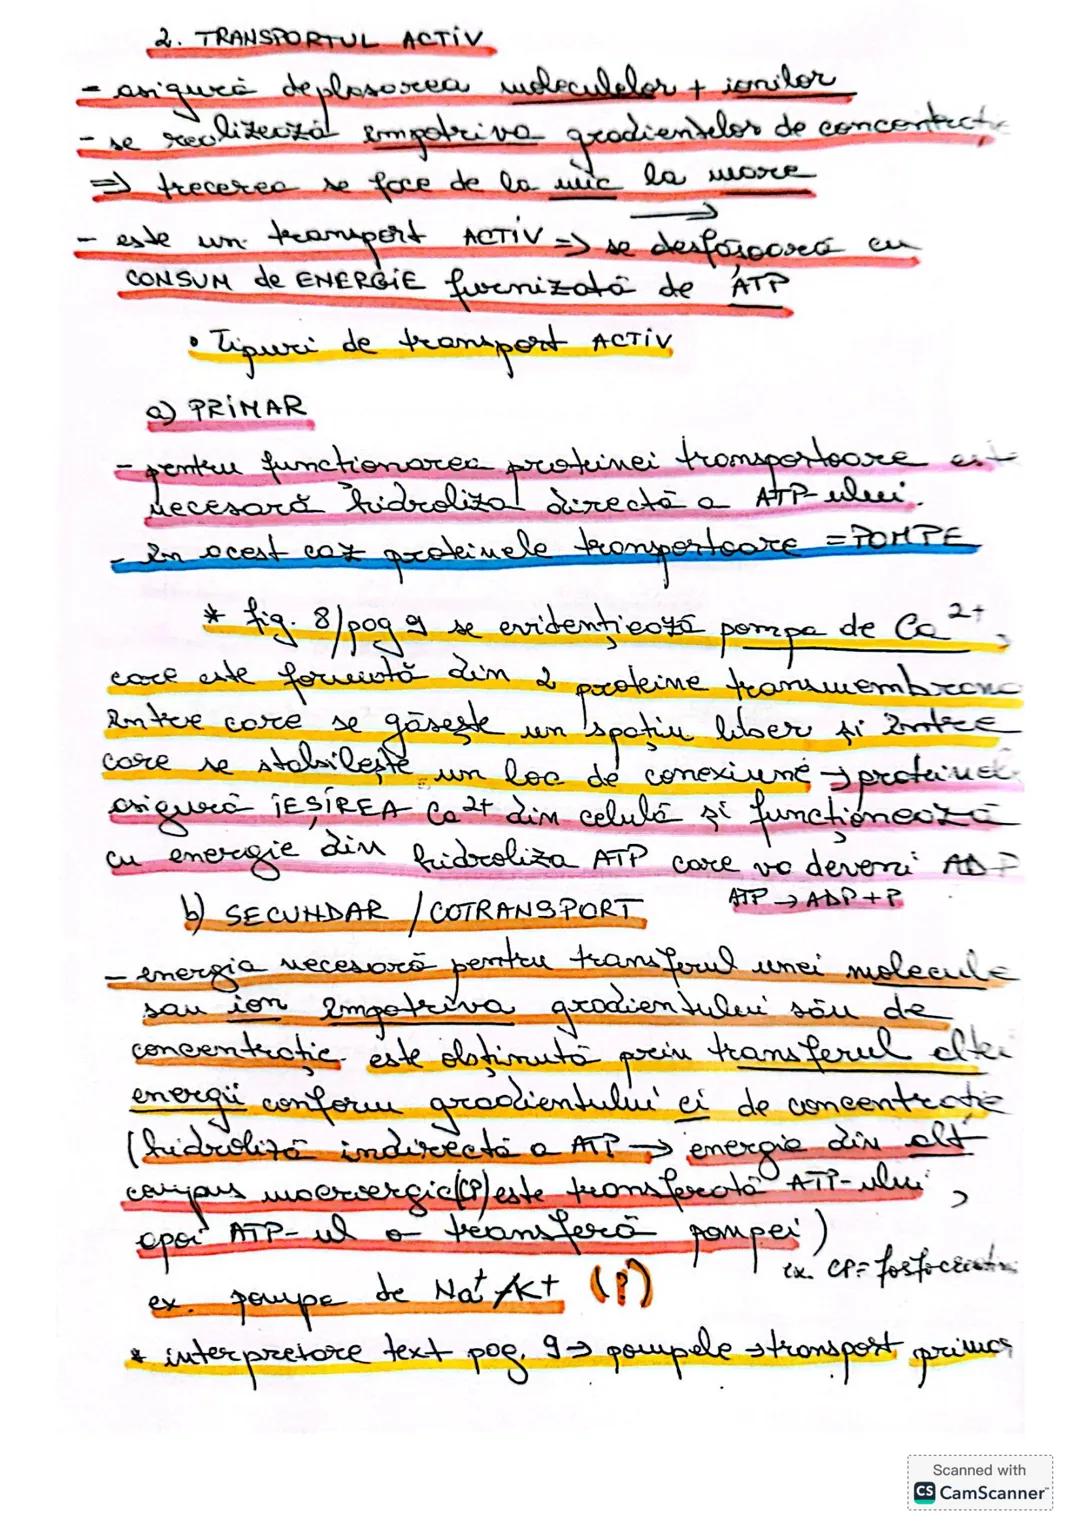 2. TRANSPORTUL ACTIV
- asigură deplasarea moleculelor + ionilor
- se realizează împotriva gradientelor de concentrație
=> trecerea se face de la mic la mare
- este un transport ACTIV => se desfășoară cu
CONSUM de ENERGIE furnizată de ATP
• Tipuri de transport ACTIV
a) PRIMAR
- pentru funcționarea proteinei transportoare este
necesară hidroliza directă a ATP-ului.
- în acest caz proteinele transportoare = POMPE
* fig. 8/pag 9 se evidențiază pompa de Ca2+,
care este formată din 2 proteine transmembrana
între care se găsește un spațiu liber și între
care se stabilește un loc de conexiune → proteinele
asigură IEȘIREA Ca2+ din celulă și funcționează
cu energie din hidroliza ATP care va deveni ADP
ATP → ADP + P
b) SECUNDAR / COTRANSPORT
- energia necesară pentru transferul unei molecule
sau ion împotriva gradientului său de
concentrație este obținută prin transferul altei
energii conform gradientului ei de concentrație
(hidroliză indirectă a ATP → energie din alt
compus macroergic (CP) este transferată ATP-ului,
apoi ATP-ul o transferă pompei)
ex. CP = fosfocreatina
ex. pompa de Na+/K+ (?)
* interpretare text pag. 9 → pompele → transport primar
Scanned with
CS CamScanner